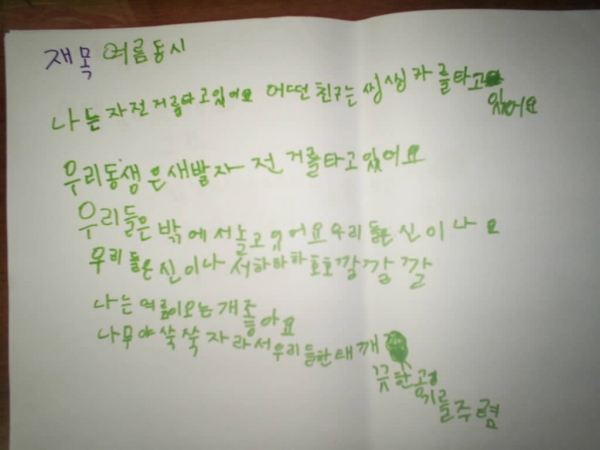 재목 여름동시
나는 자전거를타고있어요 어떤친구는 씽씽카를타고있어요
우리동생은세발자전거를타고있어요
우리들은 밖에서놀고있어요우리들은신이나요
우리들은신이나서하하하호호깔깔깔
나는여름이오는개좋아요
나무야쑥쑥자라서우리들한태깨끗한공기를주렴